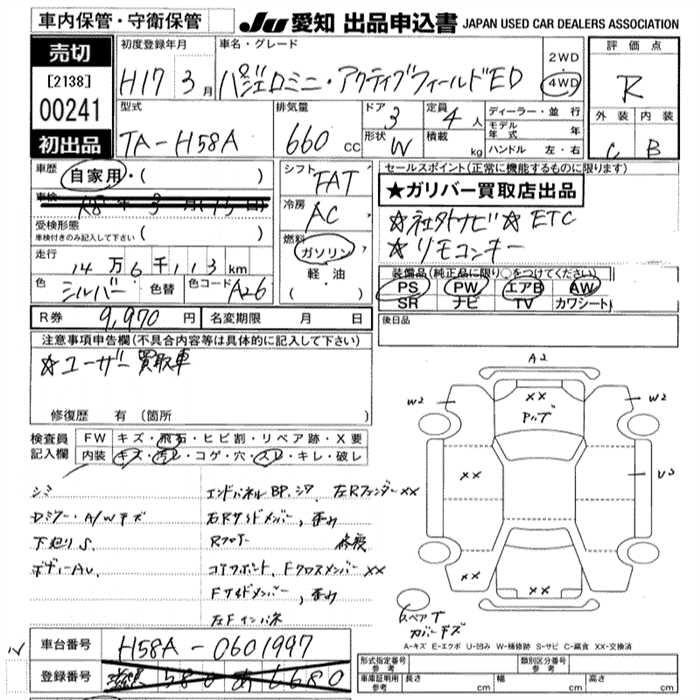 車内保管・守衛保管
JU 愛知 出品申込書 JAPAN USED CAR DEALERS ASSOCIATION
売切
[2138]
00241
初出品
初度登録年月
H17 3月
車名・グレード
パジェロミニ・アクティブフィールドED
2WD
4WD
評価点
R
外装 内装
C B
型式
TA-H58A
排気量
660 cc
ドア 3
形状 W
定員 4人
積載 kg
ディーラー・並行
モデル年式 年
ハンドル 左・右
車歴 自家用・( )
車検 R8年 3月(15日)
受検形態
車検付きのみ記入して下さい ( )
走行
14万6千113km
色 シルバー 色替 色コード A26
シフト FAT
冷房 AC
燃料 ガソリン
軽油
( )
セールスポイント(正常に機能するものに限ります)
★ガリバー買取店出品
☆社外ナビ☆ETC
☆リモコンキー
装備品(純正品に限り○をつけてください)
PS PW エアB AW
SR ナビ TV カワシート
R券 9,970円 名変期限 月 日
後日品
注意事項申告欄(不具合内容等は具体的に記入して下さい)
☆ユーザー買取車
修復歴 有 (箇所 )
検査員記入欄
FW キズ・飛石・ヒビ割・リペア跡・X要
内装 キズ・汚レ・コゲ・穴・スレ・キレ・破レ
シミ
エンドパネルBP、シワ 左Rフェンダーxx
A/Wキズ
右Rサイドメンバー、歪み
下廻りS
Rフロア 修複
ボディーAU
コアサポート、Fクロスメンバーxx
Fサイドメンバー、歪み
左Fインパネ
A2
W2
xx
W2
xx
U3
xx
xx
スペアT
カバーキズ
A-キズ E-エクボ U-凹み W-補修跡 S-サビ C-腐食 XX-交換済
車台番号 H58A-0601997
登録番号 滋賀 580 あ 6680
形式指定番号 参考
類別区分番号 参考
車庫証明用 参考 長さ cm 幅 cm 高さ cm